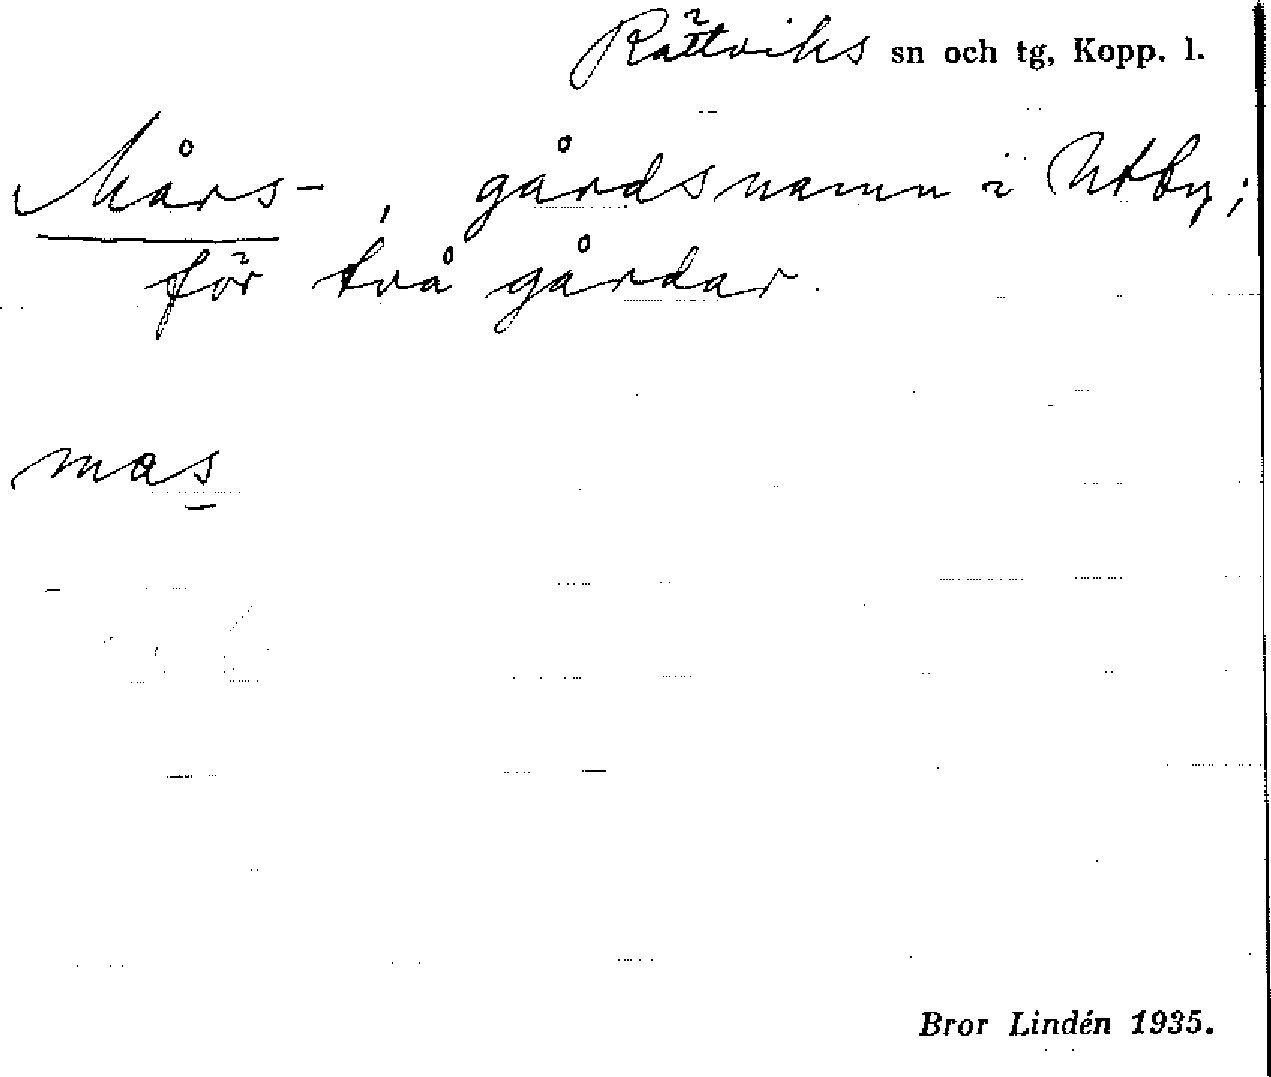 Rättviks sn och tg, Kopp. l.
Mårs-, gårdsnamn i Utby;
för två gårdar.
mas
Bror Lindén 1935.